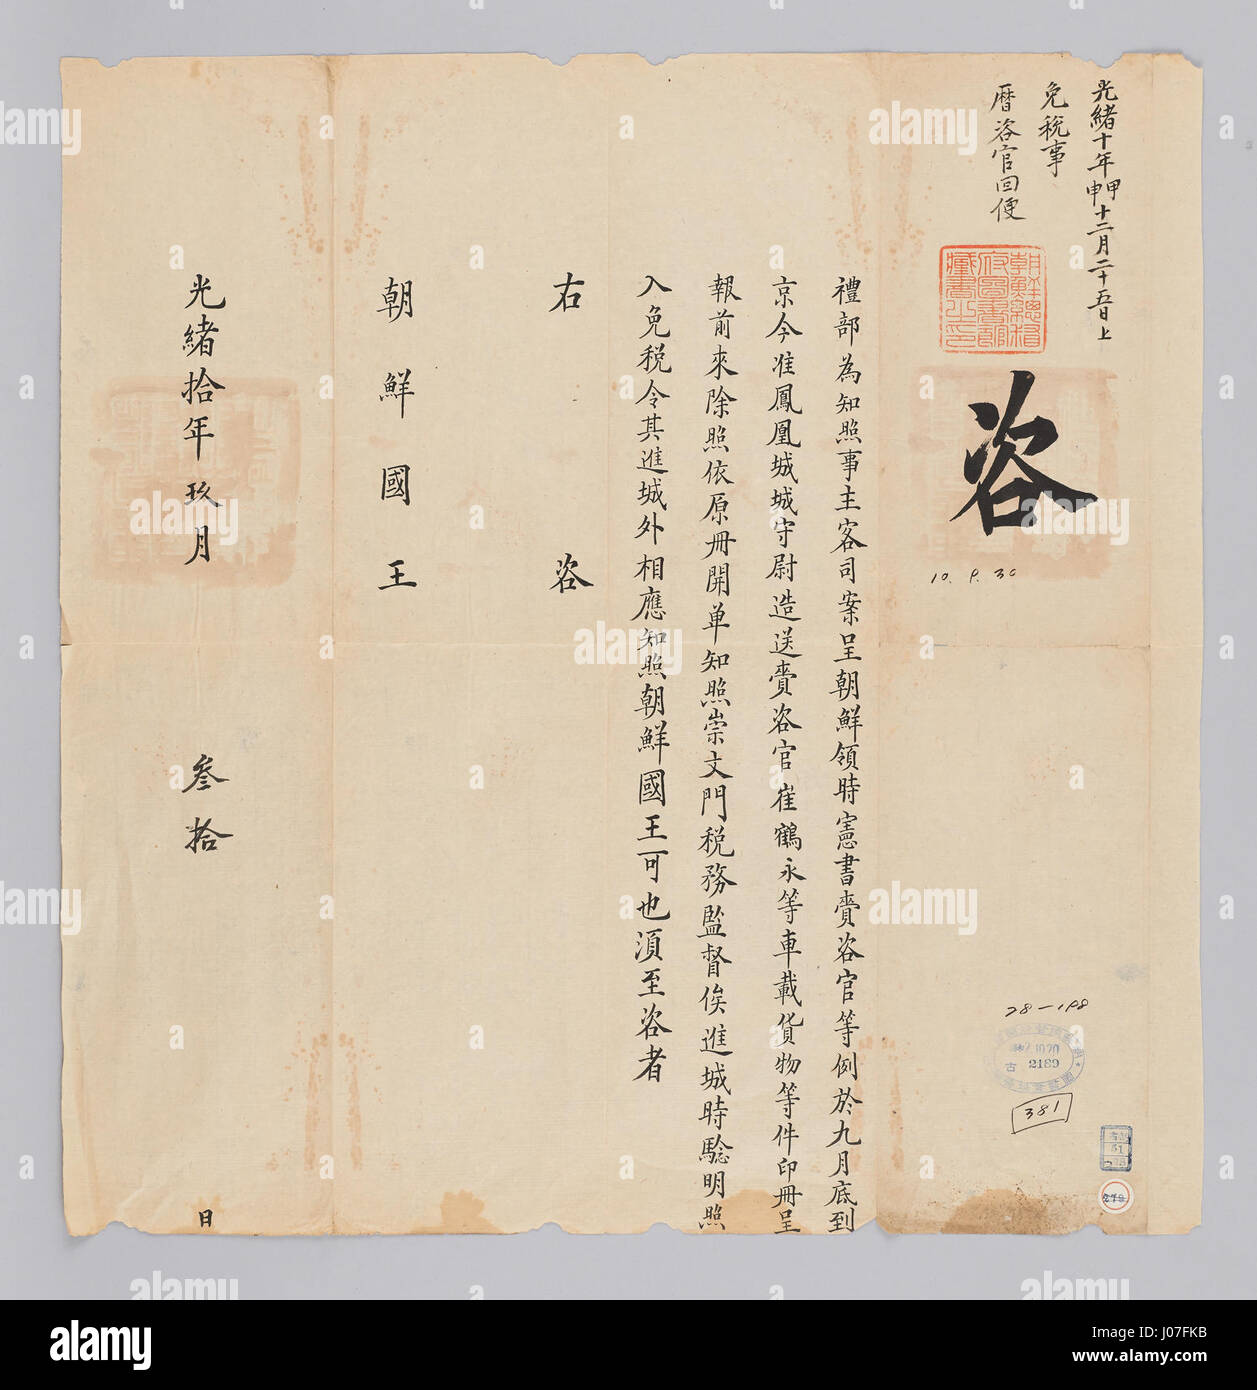 光緒十年甲申十二月二十五日上
免稅事
曆咨官回便
朝鮮總督
府圖書館
藏書之印
咨
10. 9. 30
禮部為知照事主客司案呈朝鮮領時憲書賫咨官等例於九月底到
京今准鳳凰城城守尉造送賫咨官崔鶴永等車載貨物等件印冊呈
報前來除照依原冊開單知照崇文門稅務監督俟進城時驗明照
入免稅令其進城外相應知照朝鮮國王可也須至咨者
右咨
朝鮮國王
光緒拾年玖月叁拾日
28-198
10.20
古 2189
381
51
279
alamy
J07FKB
www.alamy.com